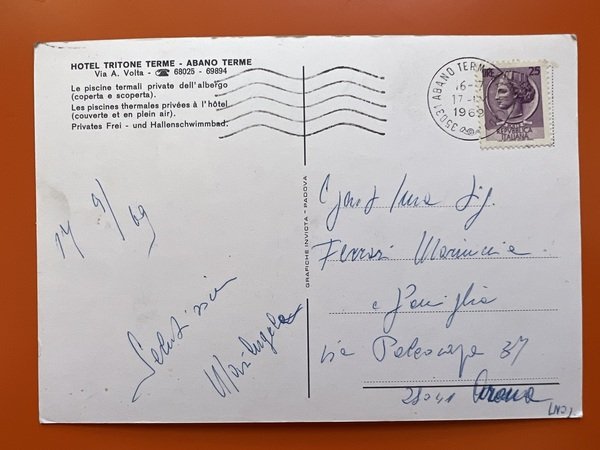 HOTEL TRITONE TERME - ABANO TERME
Via A. Volta - ☎ 68025 - 69894
Le piscine termali private dell'albergo
(coperta e scoperta).
Les piscines thermales privées à l'hôtel
(couverte et en plein air).
Privates Frei - und Hallenschwimmbad.
35031 ABANO TERME
1969
LIRE 25
REPVBBLICA
ITALIANA
GRAFICHE INVICTA - PADOVA
17 9/69
Saluti
Mariangela
Gent.ma Sig.
Ferrari
e famiglia
via 37
28041 Arona
(NO)